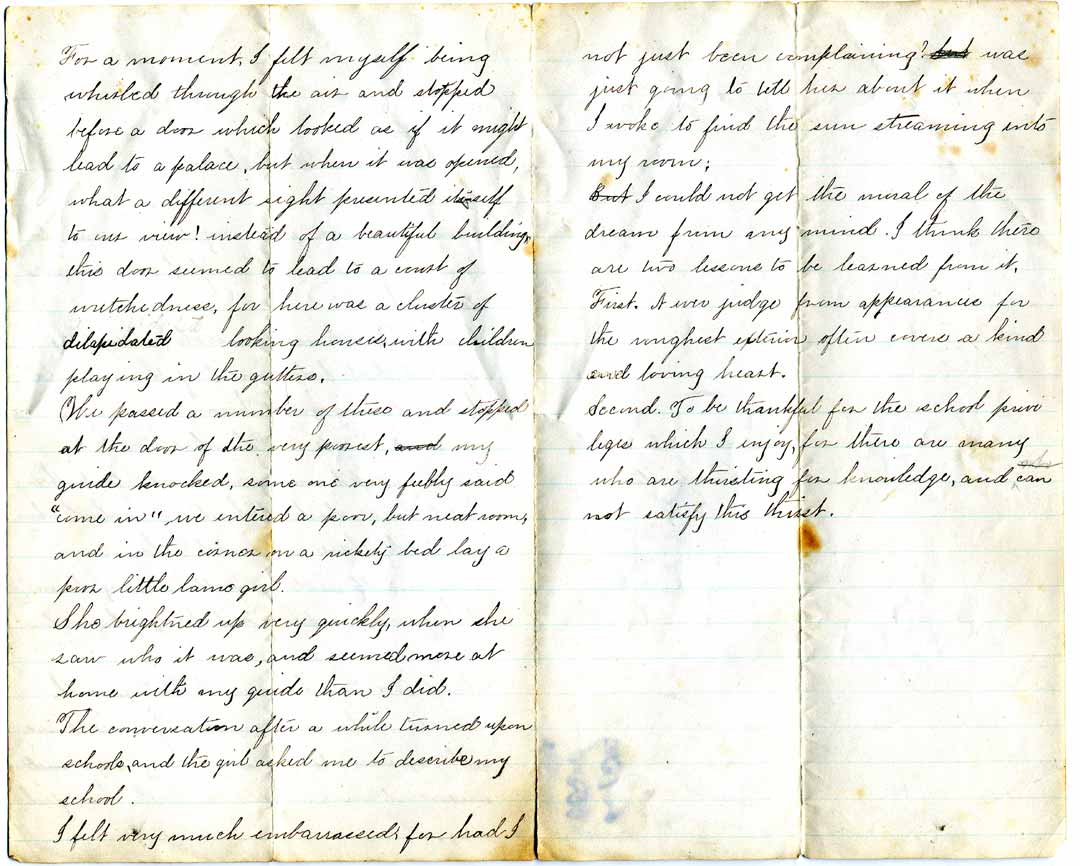 For a moment, I felt myself being
whirled through the air and stopped
before a door which looked as if it might
lead to a palace, but when it was opened,
what a different sight presented itself
to our view! instead of a beautiful building,
this door seemed to lead to a court of
wretchedness, for here was a cluster of
dilapidated looking houses, with children
playing in the gutters.
We passed a number of these and stopped
at the door of the very poorest, and my
guide knocked, some one very feebly said
"come in" we entered a poor, but neat room,
and in the corner on a rickety bed lay a
poor little lame girl.
She brightned up very quickly, when she
saw who it was, and seemed more at
home with my guide than I did.
The conversation after a while turned upon
schools, and the girl asked me to describe my
school.
I felt very much embarrassed, for had I
not just been complaining? but was
just going to tell her about it when
I woke to find the sun streaming into
my room;
But I could not get the moral of the
dream from my mind. I think there
are two lessons to be learned from it.
First. Never judge from appearances for
the roughest exterior often covers a kind
and loving heart.
Second. To be thankful for the school privi
leges which I enjoy, for there are many
who are thirsting for knowledge, and can
not satisfy this thirst.